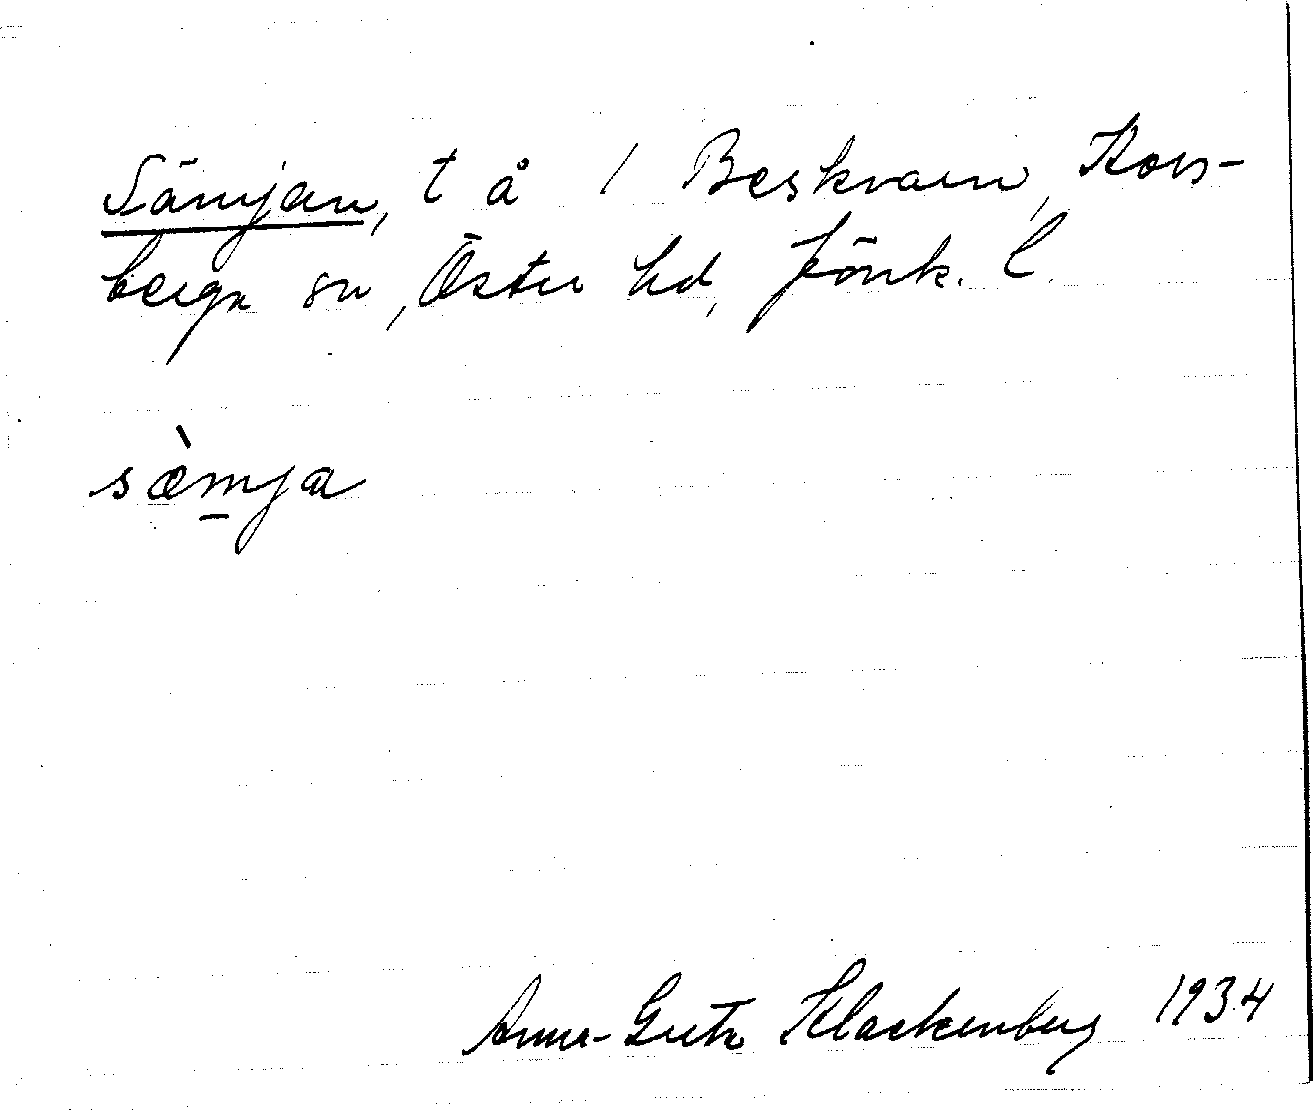 Sämjan, t å / Beskvarn, Kors-
berga sn, Östra hd, Jönk. l.
sæ̀mja
Anna-Greta Klackenberg 1934